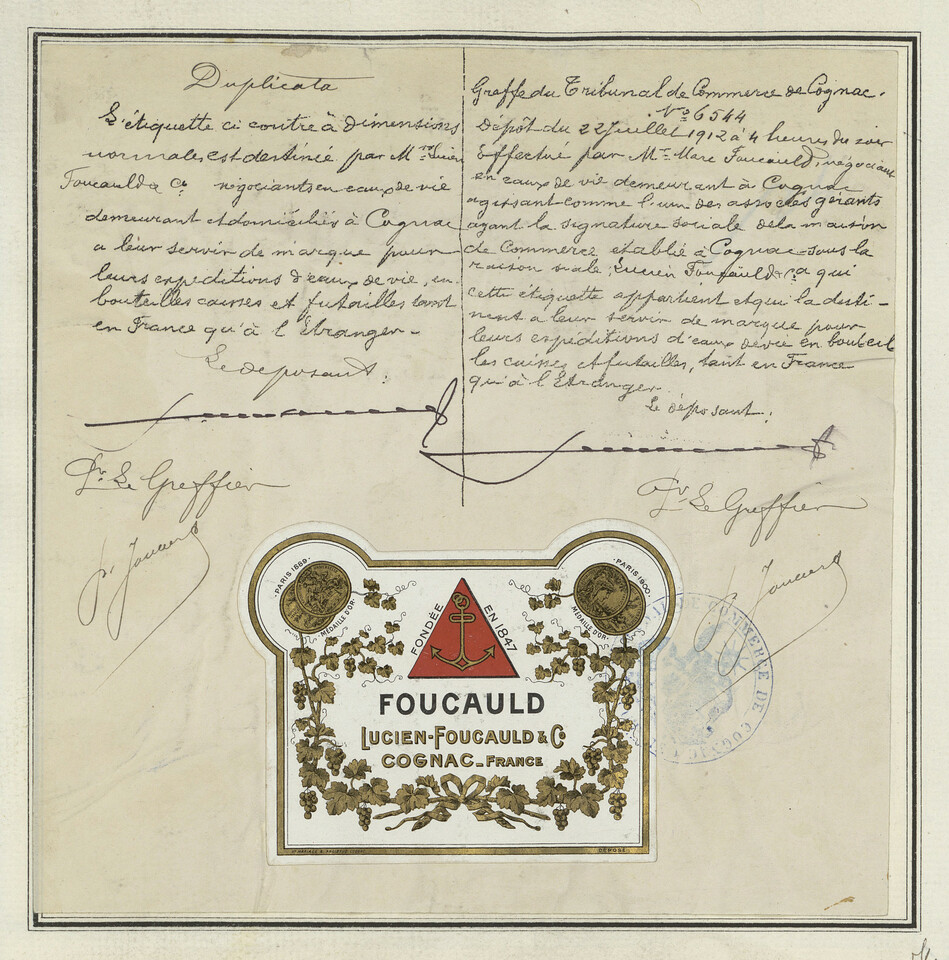 Duplicata
L'étiquette ci contre à dimensions
normales est destinée par Mr Lucien
Foucauld & Co négociants en eaux de vie
demeurant et domiciliés à Cognac
a leur servir de marque pour
leurs expeditions d'eaux de vie, en
bouteilles caisses et futailles tant
en France qu'à l'Étranger -
Le deposant:
Pr Le Greffier
Greffe du Tribunal de Commerce de Cognac.
No 6544
Dépôt du 22 Juillet 1912 à 4 heures du soir
Effectué par Mr Marc Foucauld, négociant
en eaux de vie demeurant à Cognac
agissant comme l'un des associés gérants
ayant la signature sociale de la maison
de Commerce etablie à Cognac sous la
raison siale: Lucien Foucauld & Ca qui
cette étiquette appartient et qui la desti-
nent a leur servir de marque pour
leurs expéditions d'eaux de vie en bouteil
les caisses et futailles, tant en France
qu'à l'Étranger.
Le déposant:
Pr Le Greffier
PARIS 1889
MÉDAILLE D'OR
FONDÉE EN 1847
PARIS 1900
MÉDAILLE D'OR
FOUCAULD
LUCIEN-FOUCAULD & Co
COGNAC_FRANCE
DÉPOSÉ
DE COMMERCE DE COGNAC